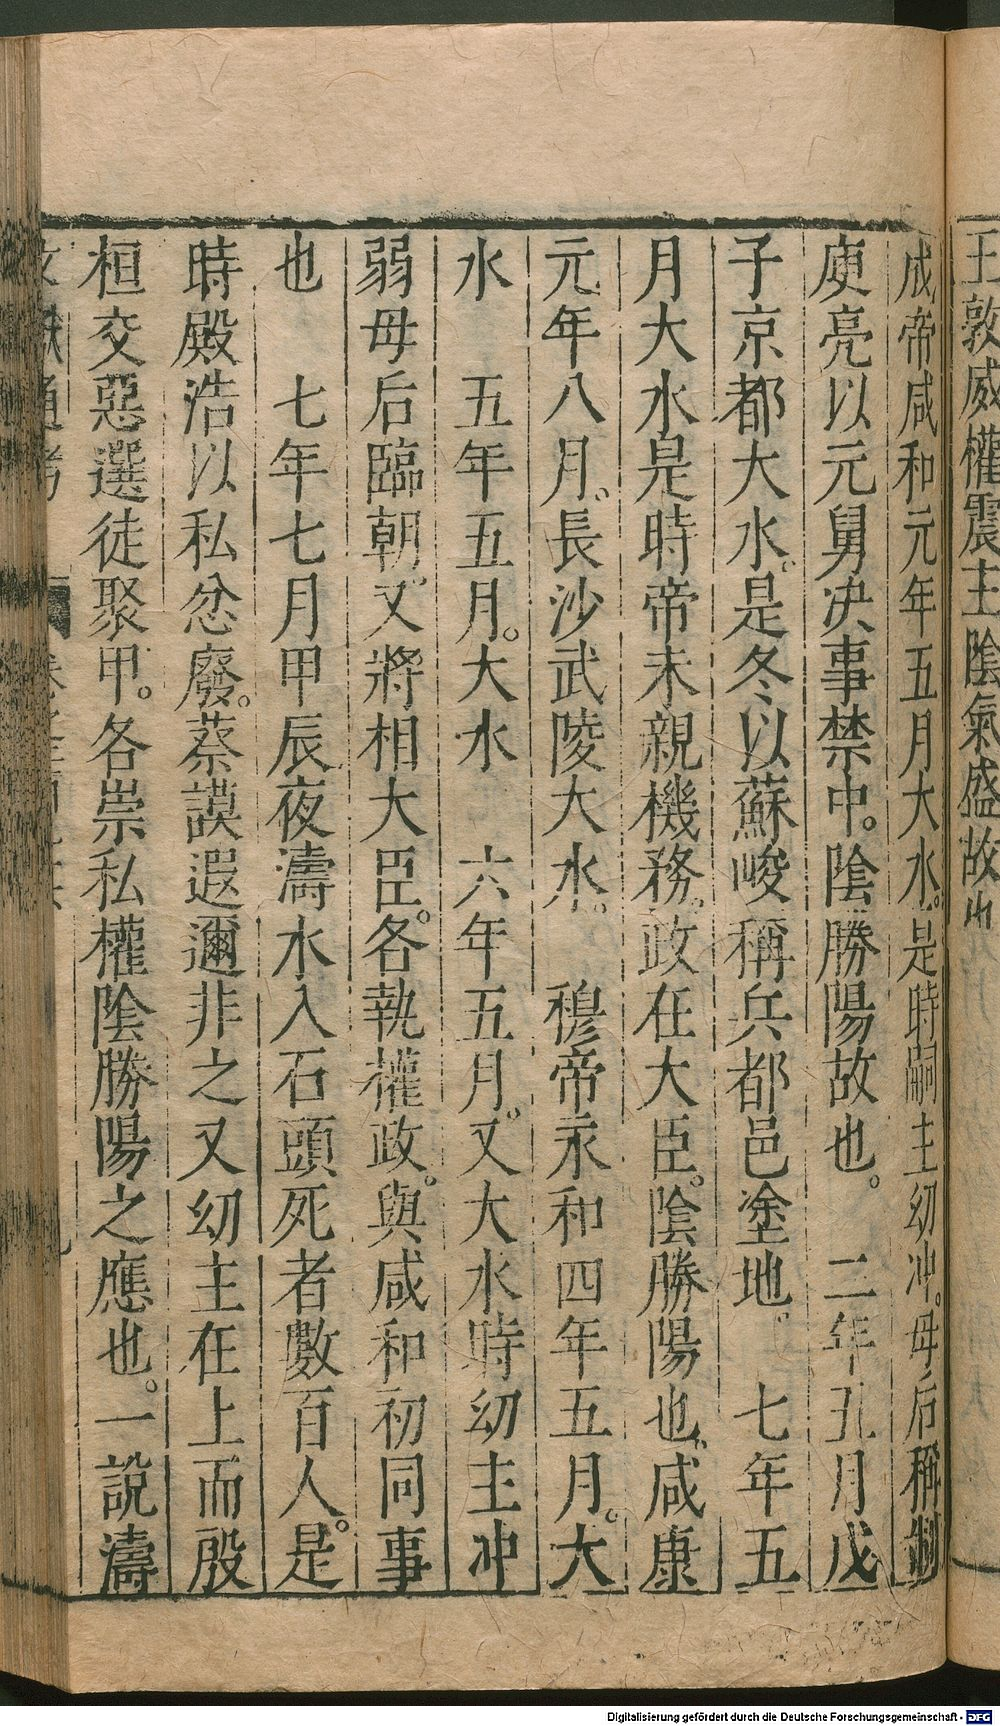 王敦威權震主陰氣盛故也
成帝咸和元年五月大水。是時嗣主幼冲。母后稱制
庾亮以元舅决事禁中。陰勝陽故也。　二年孔月戊
子京都大水。是冬以蘇峻稱兵都邑塗地。　七年五
月大水是時帝未親機務。政在大臣。陰勝陽也。咸康
元年八月。長沙武陵大水。　穆帝永和四年五月。大
水　五年五月。大水　六年五月。又大水時幼主冲
弱母后臨朝。又將相大臣。各執權政。與咸和初同事
也　七年七月甲辰夜濤水入石頭死者數百人。是
時殿浩以私忿廢。蔡謨遐邇非之又幼主在上而殷
桓交惡選徒聚甲。各崇私權陰勝陽之應也。一說濤
文獻通考
Digitalisierung gefördert durch die Deutsche Forschungsgemeinschaft - DFG